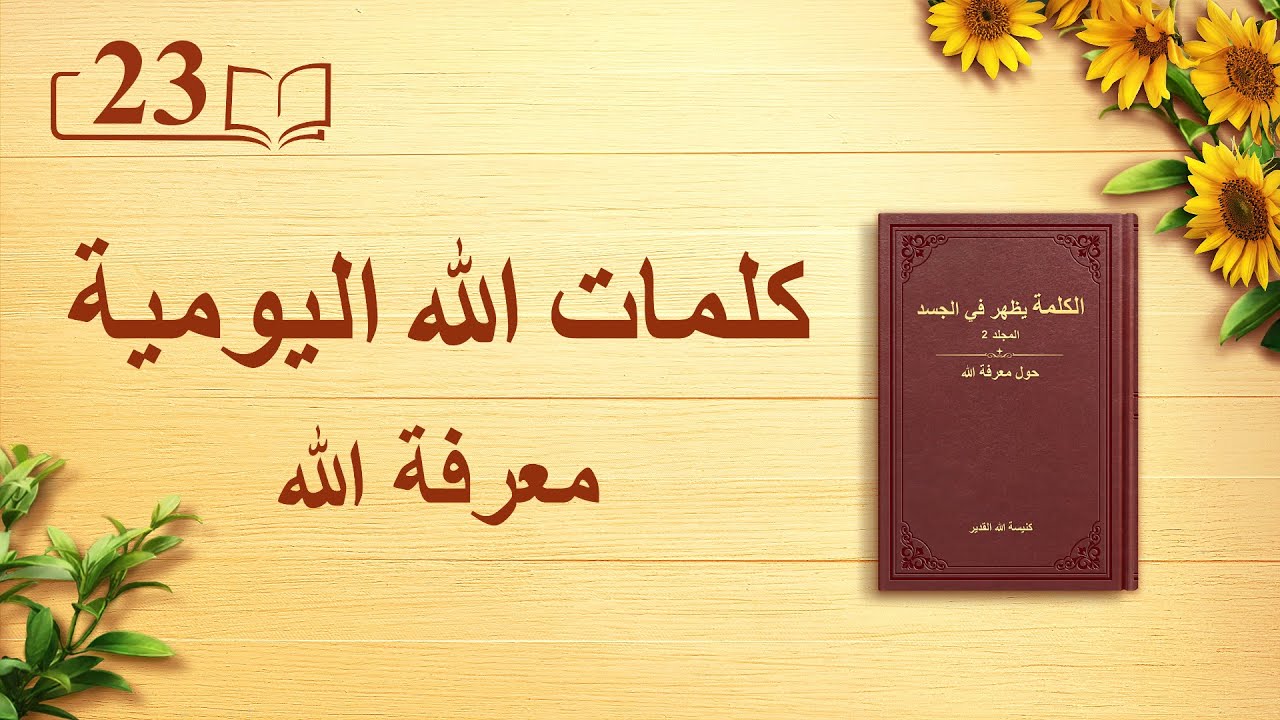 23
كلمات الله اليومية
معرفة الله
الكلمة يظهر في الجسد
المجلد 2
حول معرفة الله
كنيسة الله القدير